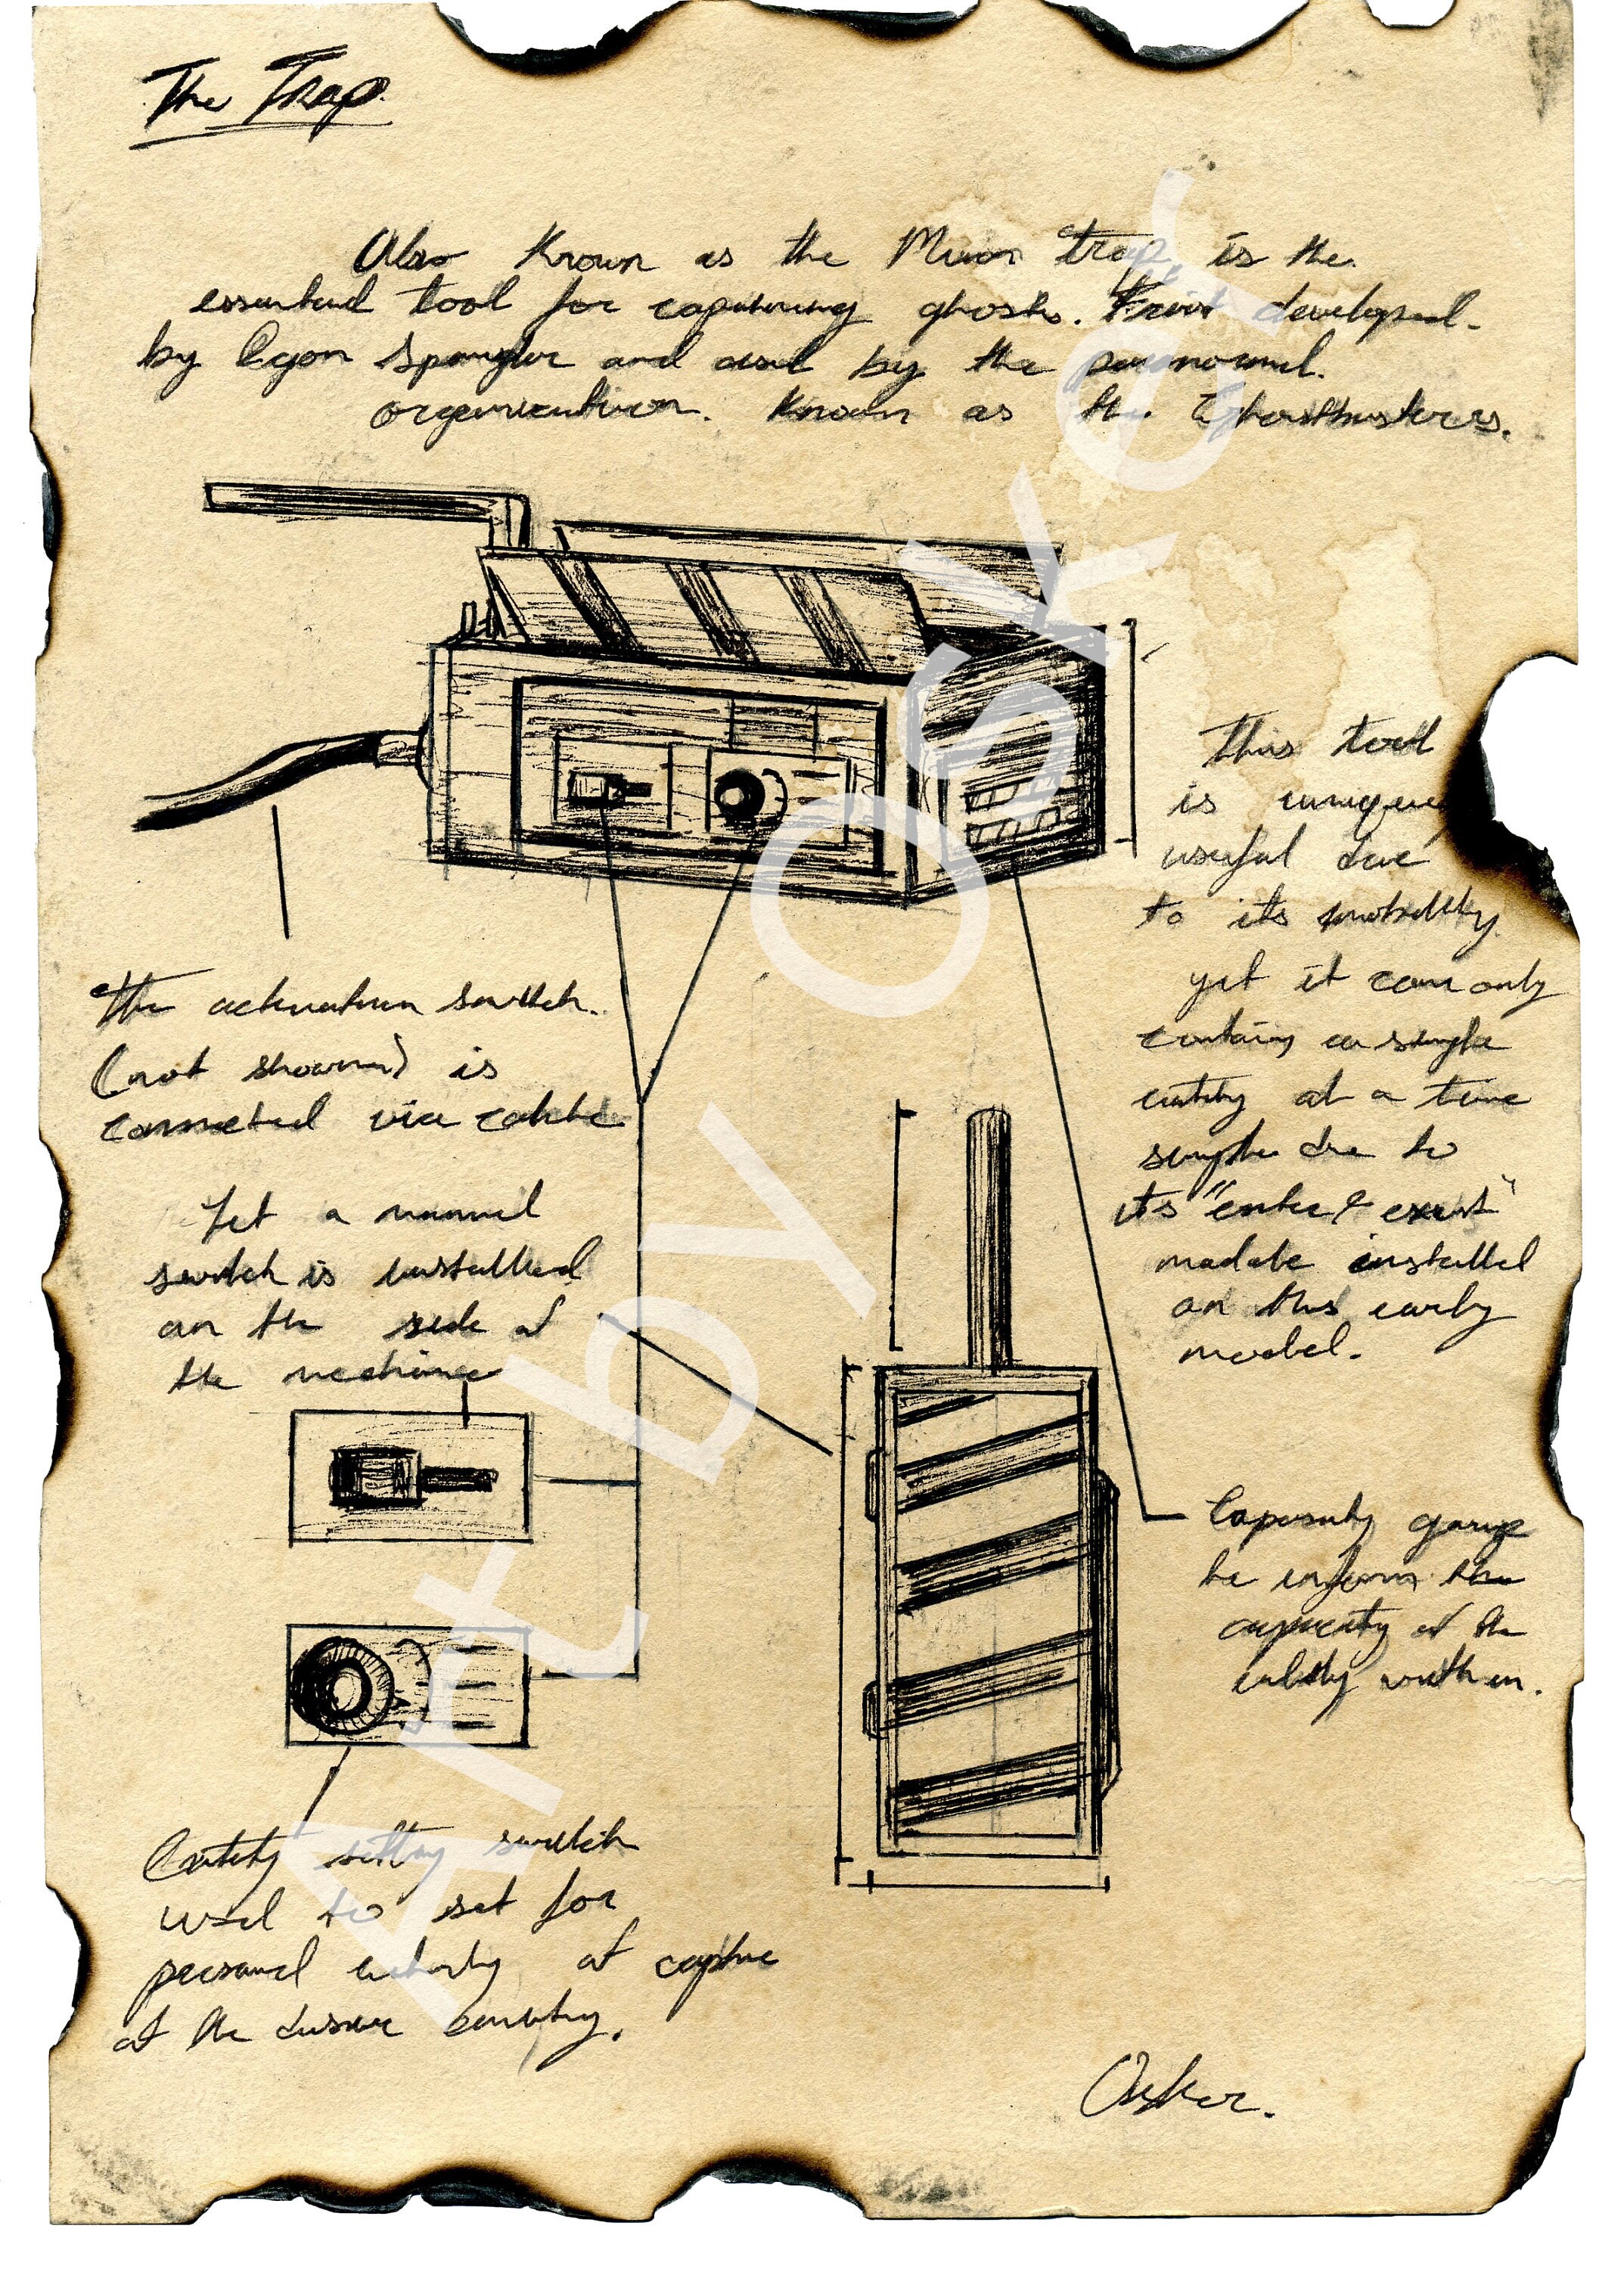 The Trap.
Also Known as the Muon trap is the
essential tool for capturing ghosts. First developed
by Egon Spengler and used by the paranormal
organization. Known as the Ghostbusters.
This tool
is uniquely
useful due
to its mobility
yet it can only
contain a single
entity at a time
simple due to
its "enter & exist"
installed
on this early
model.
The activation switch.
(not shown) is
connected via cable
Yet a manual
switch is installed
on the side of
the machine
Capacity gauge
to inform the
capacity of the
entity within.
Entity setting switch
used to set for
personal entity at capture
at the
Osker.
Art by Osker